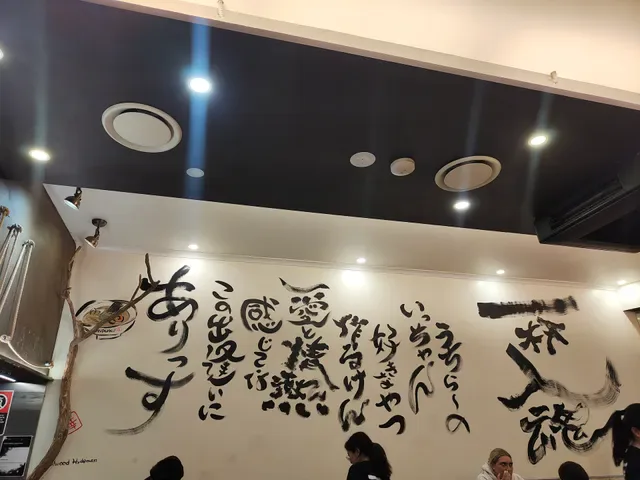 一杯入魂
うちら〜の
いっちゃん
好きなやつ
作るけん
愛と情熱
感じて
この出逢いに
ありっす